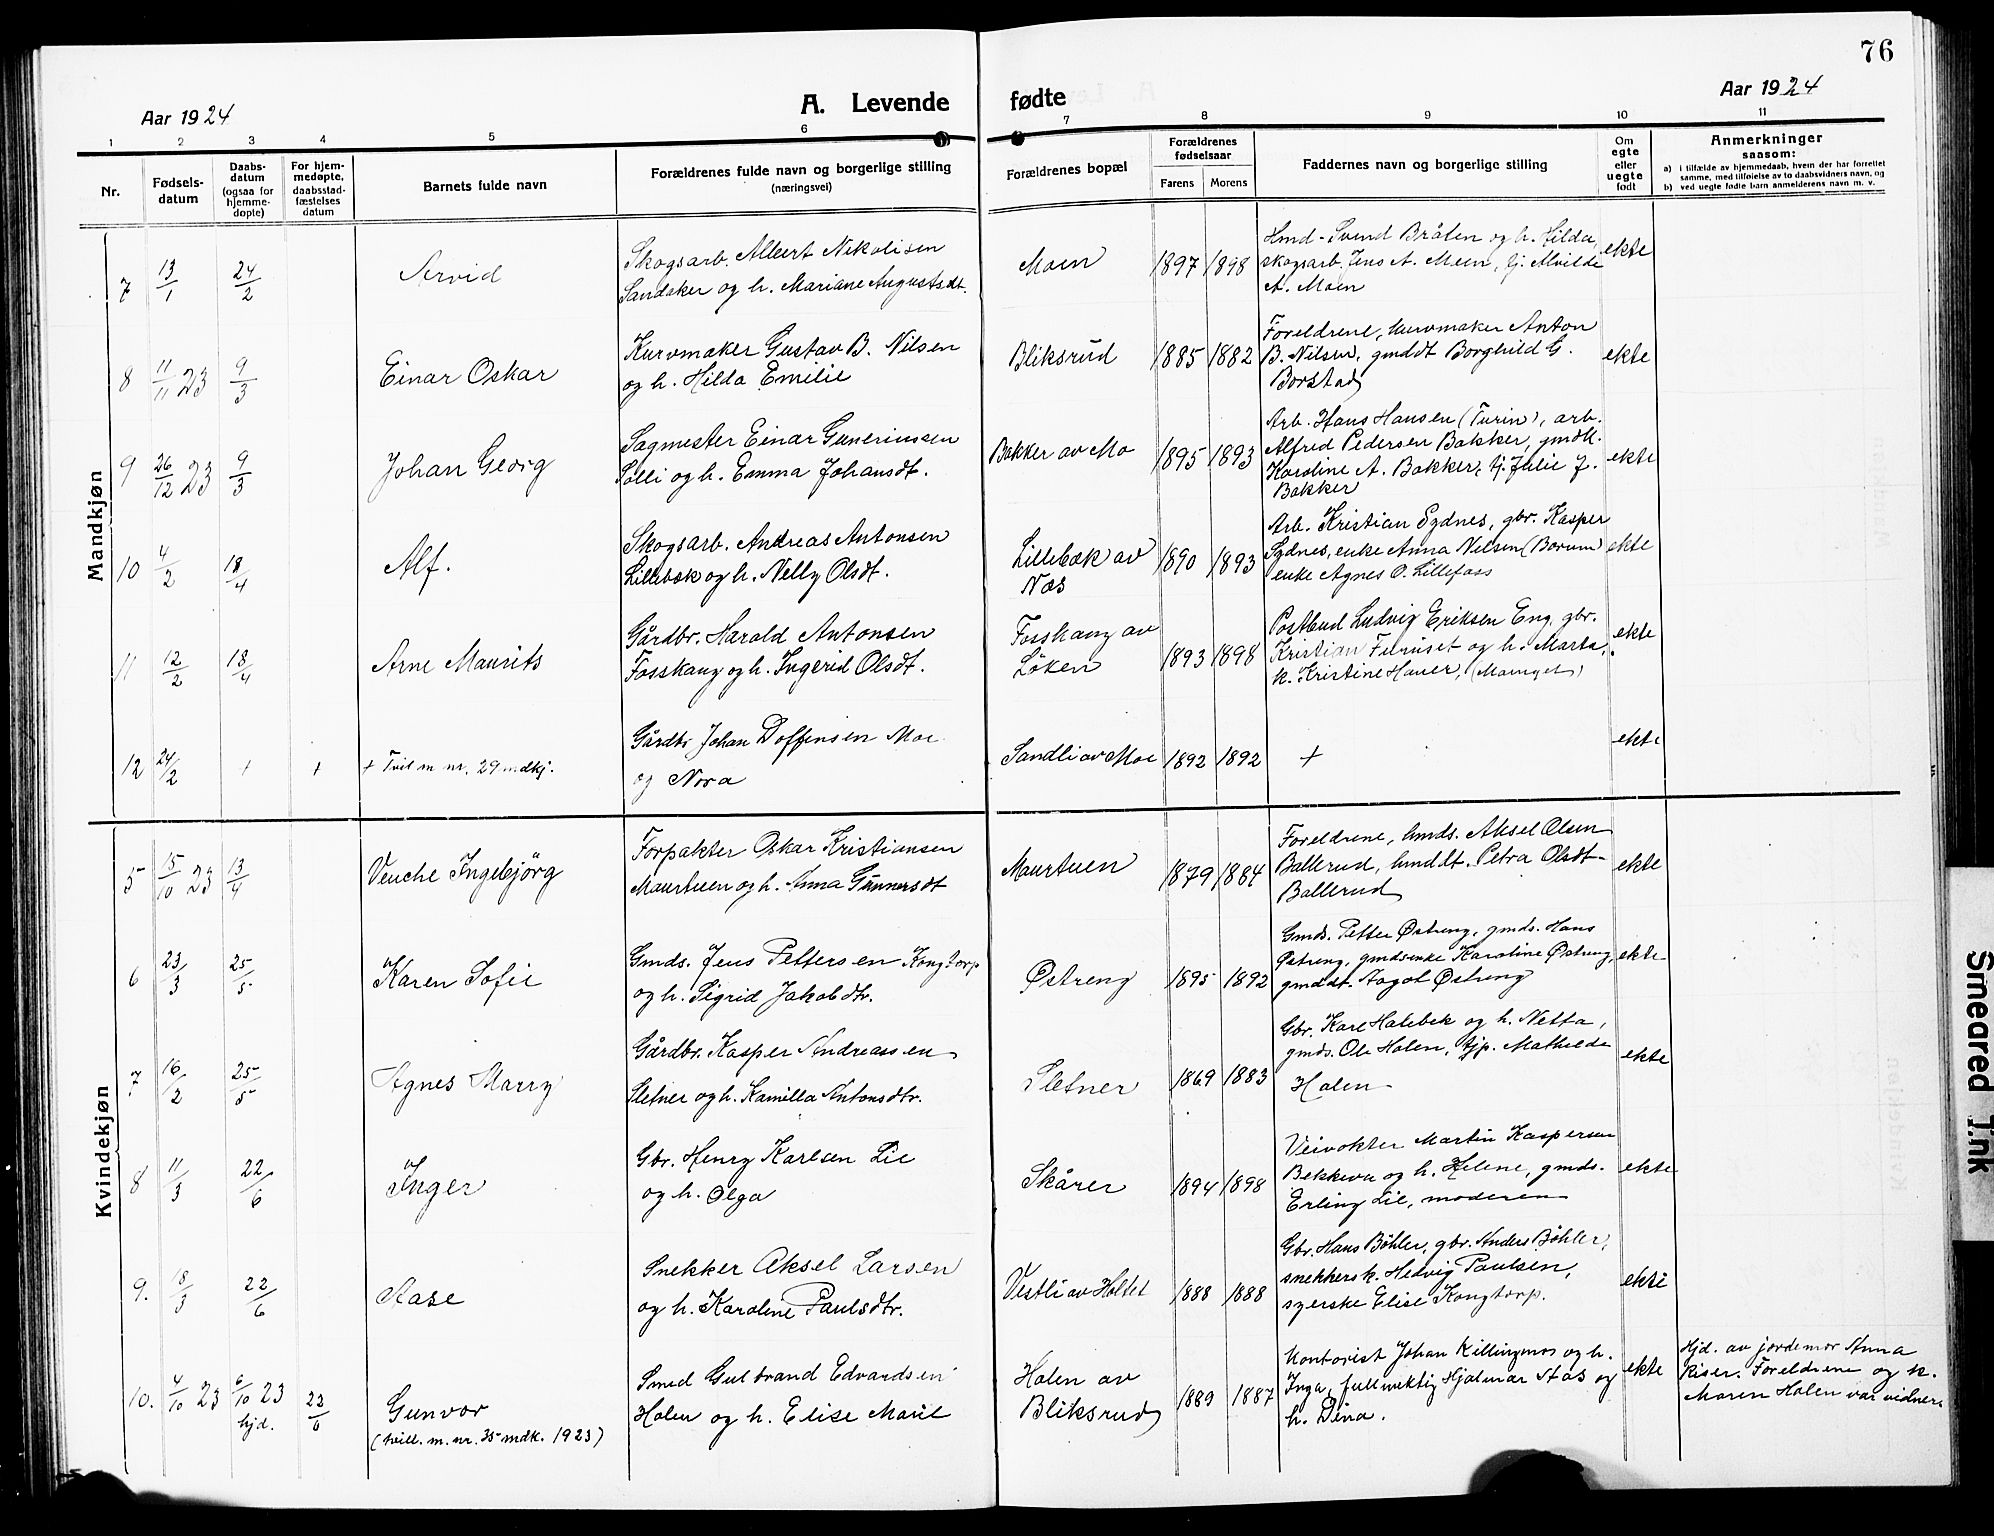 76
Aar 1924
A. Levende fødte
Aar 1924
1 2 3 4 5 6 7 8 9 10 11
Nr.
Fødsels-
datum
Daabs-
datum
(ogsaa for
hjemme-
døpte)
For hjem-
medøpte,
daabsstad-
fæstelses
datum
Barnets fulde navn
Forældrenes fulde navn og borgerlige stilling
(næringsvei)
Forældrenes bopæl
Forældrenes
fødselsaar
Farens Morens
Faddernes navn og borgerlige stilling
Om
egte
eller
uegte
født
Anmerkninger
saasom:
a) i tilfælde av hjemmedaab, hvem der har forrettet
samme, med tilføielse av to daabsvidners navn, og
b) ved uegte fødte barn anmelderens navn m. v.
Mandkjøn
7 13/1 24/2 Arvid
Skogsarb. Albert Nikolisen
Sandaker og h. Mariane Augustsdt.
Moen 1897 1898
Hmd. Svend Bråten og h. Hilda,
skogsarb. Jens A. Moen, tj. Alvilde
A. Moen
ekte
8 11/11 23 9/3 Einar Oskar
Kurvmaker Gustav B. Nilsen
og h. Hilda Emilie
Bliksrud 1885 1882
Foreldrene, kurvmaker Anton
B. Nilsen, gmddt Borghild G.
Borstad
ekte
9 26/12 23 9/3 Johan Georg
Sagmester Einar Gunerinssen
Solli og h. Emma Johansdt.
Bakker av Mo 1895 1893
Arb. Hans Hansen (Turin), arb.
Alfred Pedersen Bakker, gmdk.
Karoline A. Bakker, tj. Julie J.
Bakker
ekte
10 4/2 18/4 Alf.
Skogsarb. Andreas Antonsen
Lillebæk og h. Nelly Olsdt.
Lillebæk av
Næs
1890 1893
Arb. Kristian Sydnes, gbr. Kasper
Sydnes, enke Anna Nilsen (Borum)
enke Agnes O. Lillefoss
ekte
11 12/2 18/4 Arne Maurits
Gårdbr. Harald Antonsen
Fosshaug og h. Ingerid Olsdt.
Fosshaug av
Løken
1893 1898
Postbud Ludvig Eriksen Eng, gbr.
Kristian Furuset og h. Marta,
k. Kristine Hauer,
ekte
12 24/2 + + + Tvil m nr. 29 mdkj.
Gårdbr Johan Doffensen Moe
og Nora
Sandli av Moe 1892 1892 +
ekte
Kvindekjøn
5 15/10 23 13/4 Venche Ingebjörg
Forpakter Oskar Kristiansen
Maurtuen og h. Anna Gunnersdt
Maurtuen 1879 1884
Foreldrene, hmds. Aksel Olsen
Ballerud, hmddt. Petra Olsdt-
Ballerud
ekte
6 23/3 25/5 Karen Sofie
Gmds. Jens Pettersen Kongtorp
og h. Sigrid Jakobdtr.
Østreng 1895 1892
Gmds. Petter Østreng, gmds. Hans
Østreng, gmdsenke Karoline Østreng,
gmddt. Aagot Østreng
ekte
7 16/2 25/5 Agnes Marry
Gårdbr. Kasper Andreassen
Sletner og h. Kamilla Antonsdtr.
Sletner 1869 1883
Gbr. Karl Halebek og h. Netta,
gmds. Ole Holen, tjp. Mathilde
Holen
ekte
8 11/3 22/6 Inger
Gbr. Henry Karlsen Lie
og h. Olga
Skårer 1894 1898
Veivokter Martin Kaspersen
Bekkevu og h. Helene, gmds.
Erling Lie, moderen
ekte
9. 18/3 22/6 Aase
Snekker Aksel Larsen
og h. Karoline Paulsdtr.
Vestli av Holtet 1888 1888
Gbr. Hans Böhler, gbr. Anders Böhler,
snekkers k. Hedvig Paulsen,
syerske Elise Kongtorp.
ekte
10. 4/10 23 6/10 23
hjd.
22/6 Gunvor
(tvill. m. nr. 35 mdk. 1923)
Smed Gulbrand Edvardsen
Holen og h. Elise Marie
Holen av
Bliksrud
1889 1887
Kontorist Johan Killingmos og h.
Inga, fullmektig Hjalmar Stås og
h. Dina.
ekte
Hjd. av jordemor Anna
Riser. Foreldrene og k.
Maren Holen var vidner.
Smeared Ink